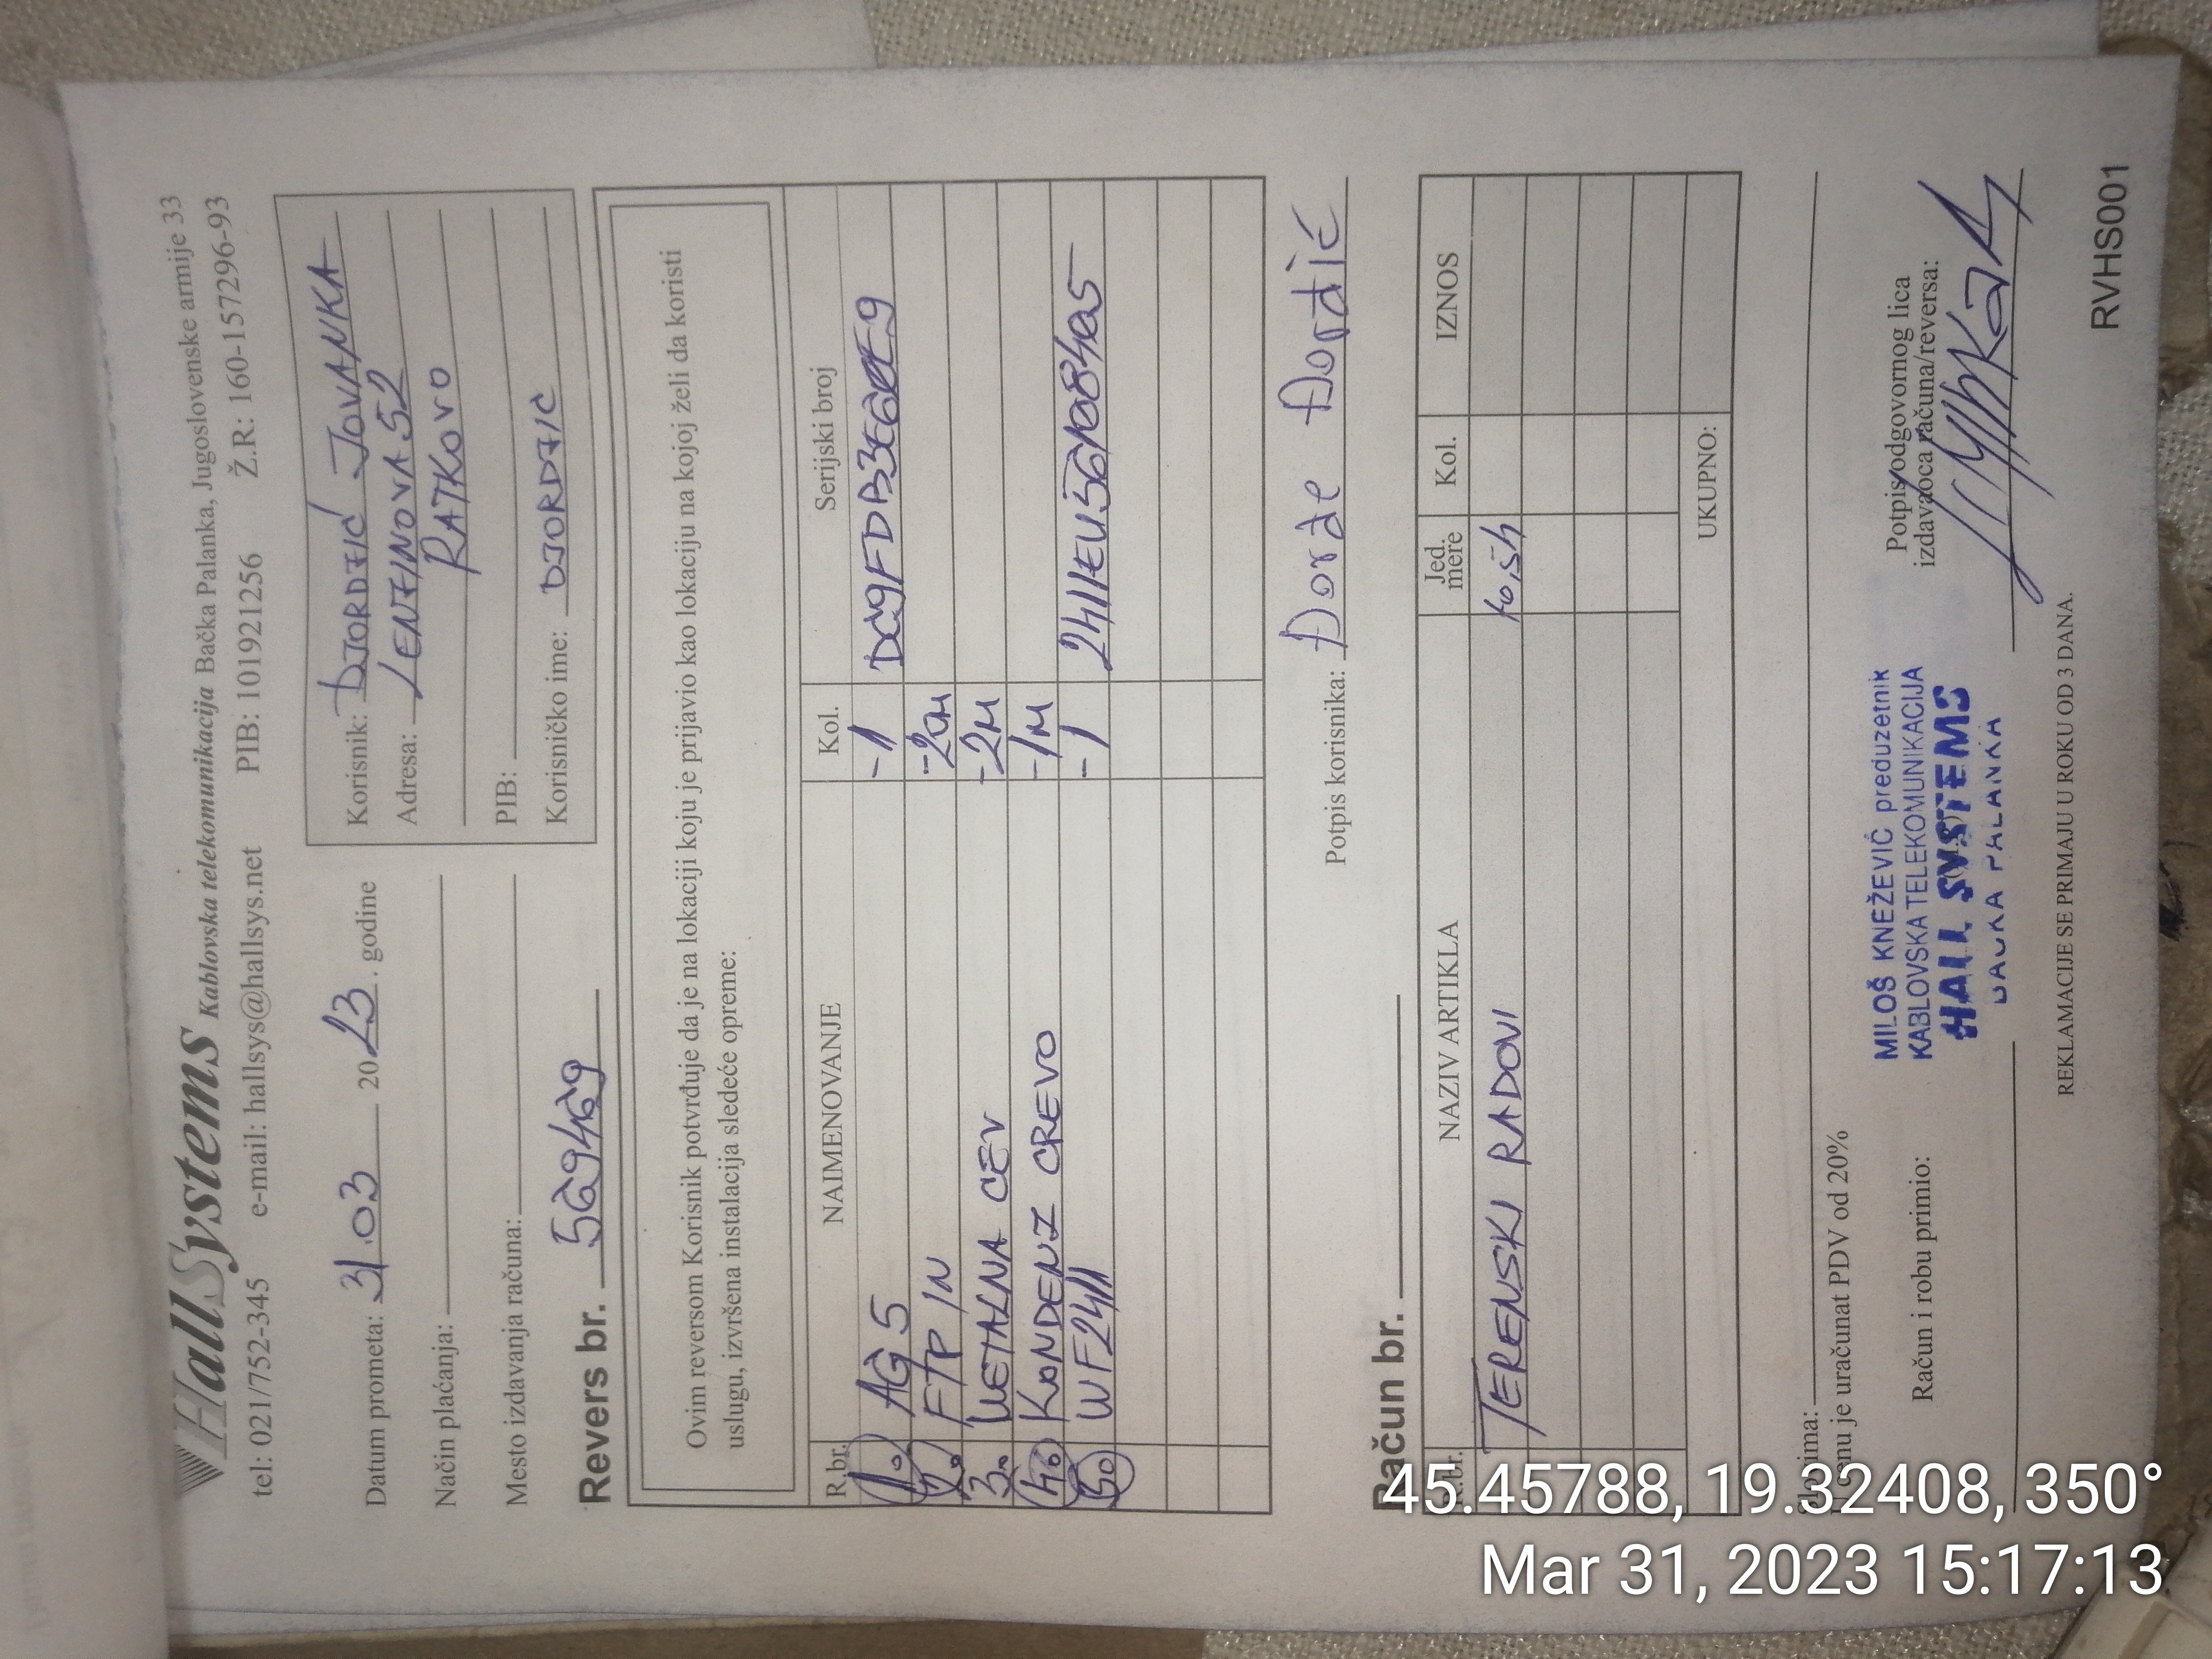 HallSystems Kablovska telekomunikacija Bačka Palanka, Jugoslovenske armije 33
tel: 021/752-345 e-mail: hallsys@hallsys.net PIB: 101921256 Ž.R: 160-1572296-93
Datum prometa: 31.03 2023. godine
Način plaćanja:
Mesto izdavanja računa:
Korisnik: DJORDJIĆ JOVANKA
Adresa: LENJINOVA 52
RATKOVO
PIB:
Korisničko ime: DJORDJIC
Revers br.
Ovim reversom Korisnik potvrđuje da je na lokaciji koju je prijavio kao lokaciju na kojoj želi da koristi
uslugu, izvršena instalacija sledeće opreme:
R.br. NAIMENOVANJE Kol. Serijski broj
1. AG 5 -1
2. FTP IN
3. METALNA CEV -2M
4. KONDENZ CREVO -1M
5. WF2411 -1
Potpis korisnika: Đorđe Đorđić
Račun br.
R.br. NAZIV ARTIKLA Jed. mere Kol. IZNOS
TERENSKI RADOVI
UKUPNO:
Slovima:
U cenu je uračunat PDV od 20%
Račun i robu primio:
MILOŠ KNEŽEVIĆ preduzetnik
KABLOVSKA TELEKOMUNIKACIJA
HALL SYSTEMS
BAČKA PALANKA
Potpis odgovornog lica
izdavaoca računa/reversa:
REKLAMACIJE SE PRIMAJU U ROKU OD 3 DANA.
RVHS001
45.45788, 19.32408, 350°
Mar 31, 2023 15:17:13